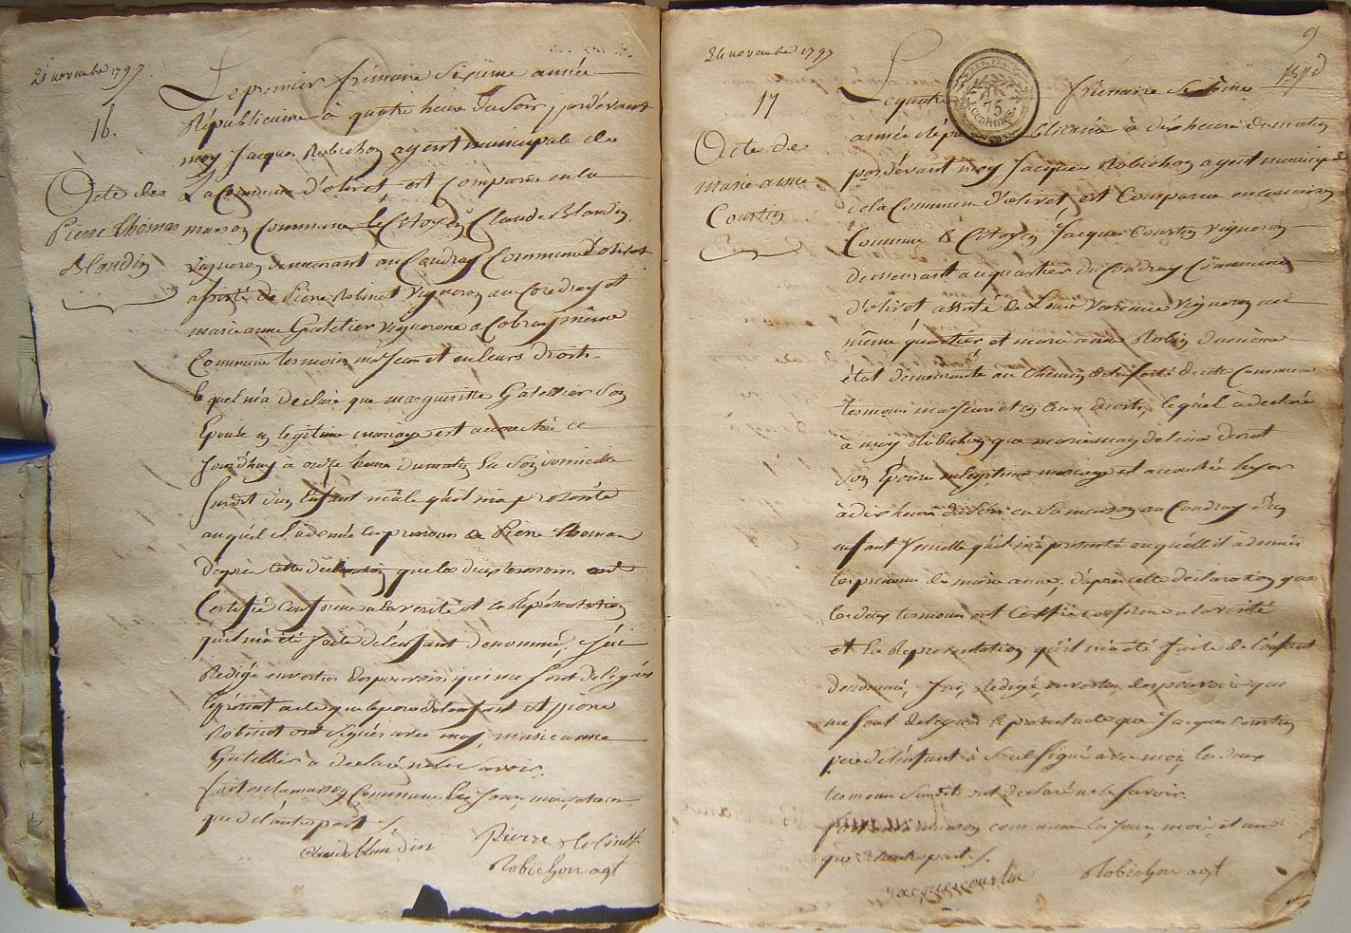 21 novembre 1797.
16.
Acte de
Pierre thomas
Blondin
Le premier frimaire Sixième année
Républicaine à quatre heure du Soir, pardevant
moy Jacque Robichon agent municipale de
La Commune d'olivet est Comparu en la
maison Commune le Citoyen Claude Blondin
vigneron demeurant au Coudray Commune d'olivet
assisté de Pierre Robinet vigneron au Coudray et
marie anne Gatellier vigneronne a Cobray même
Commune temoins majeur et en leurs droits.
lequel m'a declaré que margueritte Gatellier Son
Epouse en legitime mariage est accouchée ce
jourd'huy à onze heure du matin
Surdit d'un Enfant mâle qu'il m'a présenté
auquel il à donné les prenoms de Pierre thomas
D'après cette déclaration que les deux temoins ont
Certifié conforme a la verité et la Réprésentation
qu'il m'a été faite de l'enfant denommé, j'ai
Rédigé en vertu des pouvoirs qui me sont delegués
le présent acte que le pere de l'enfant et pierre
Robinet ont Signés avec moy, marie anne
Gatellier a declaré ne le Savoir.
fait en la maison Commune les jour, mois et an
que d'autre part ./.
claude blondin
Pierre Robinet
Robichon agt
9
24 novembre 1797
17
Acte de
marie anne
Courtin
75
Centimes
Le quatre frimaire Sixième
année républicaine à dix heure du matin
pardevant moy Jacque Robichon agent municipal
de la Commune d'olivet est Comparu en la maison
Commune le Citoyen Jacque Courtin vigneron
demeurant au quartier du Coudray Commune
d'olivet assisté de Varenne vigneron au
même quartier et marie anne Robin
état demeurante au de cette Commune
temoins majeurs et en leurs droits, lequel à declaré
à moy Robichon que marie magdeleine
Son Épouse en legitime mariage est accouchée hyer
à dix heure du Soir en Sa maison au Coudray d'un
enfant femelle qu'il m'a présenté auquel il à donné
les prenoms de marie anne, d'après cette declaration que
les deux temoins ont Certifié conforme a la verité
et la Representation qu'il m'a été faite de l'enfant
denommé, j'ai Redigé en vertu des pouvoirs qui
me sont delegués le present acte que Jacque Courtin
pere de l'enfant à Seul Signé avec moi, les deux
temoins Susdits ont declaré ne le Savoir.
fait en la maison commune les jour, mois et an
que d'autre part ./.
Jacque courtin
Robichon agt